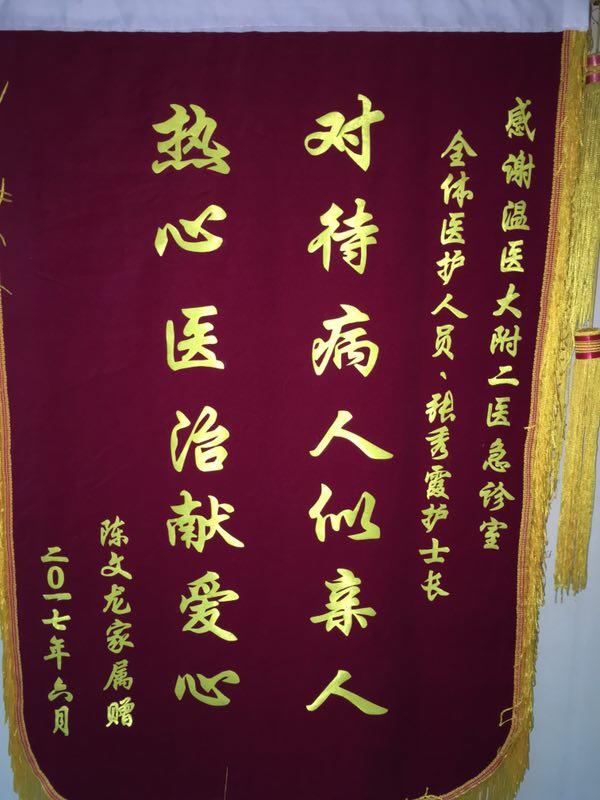 感谢温医大附二医急诊室
全体医护人员、张秀霞护士长
对待病人似亲人
热心医治献爱心
陈文龙家属赠
二〇一七年六月